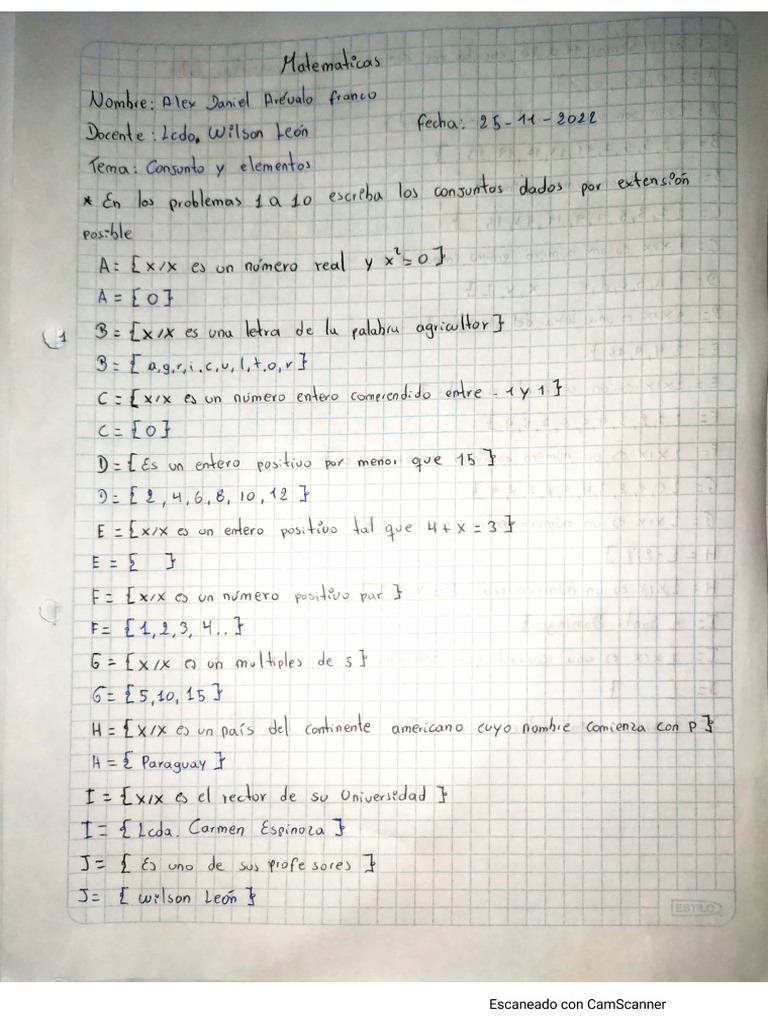 Matematicas
Nombre: Alex Daniel Arévalo franco
Docente: Lcdo. Wilson León
fecha: 25-11-2022
Tema: Consunto y elementos
* En los problemas 1 a 10 escriba los consuntos dados por extensión
posible
A= {x/x es un número real y x²=0}
A = {0}
1
B= {x/x es una letra de la palabra agricultor}
B= {a,g,r,i,c,u,l,t,o,r}
C= {x/x es un número entero comprendido entre -1 y 1}
C= {0}
D= {Es un entero positivo par menor que 15}
D= {2, 4, 6, 8, 10, 12}
E = {x/x es un entero positivo tal que 4+x=3}
E = { }
F= {x/x es un número positivo par}
F= {1, 2, 3, 4..}
G= {x/x es un multiples de 5}
G= {5, 10, 15}
H= {x/x es un país del continente americano cuyo nombre comienza con p}
H= {Paraguay}
I= {x/x es el rector de su Universidad}
I= {Lcda. Carmen Espinoza}
J= {Es uno de sus profesores}
J= {Wilson León}
ESTILO
Escaneado con CamScanner